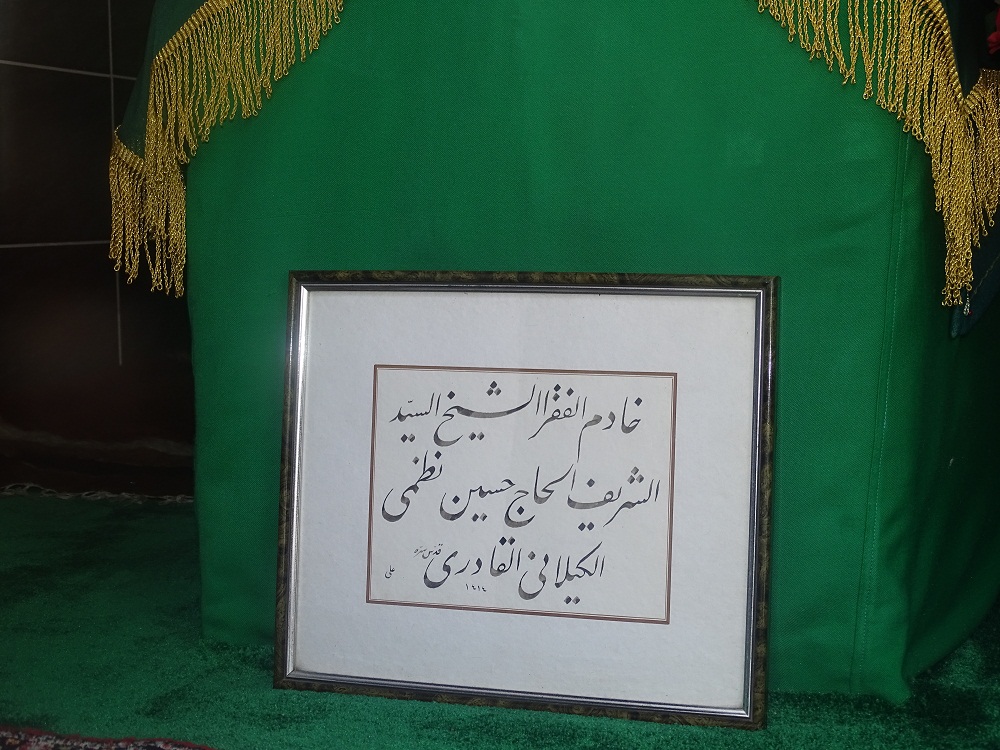 خادم الفقرا الشيخ السيّد
الشريف الحاج حسين نظمى
الكيلانى القادرى قدّس سرّه
علی
١٤١٤